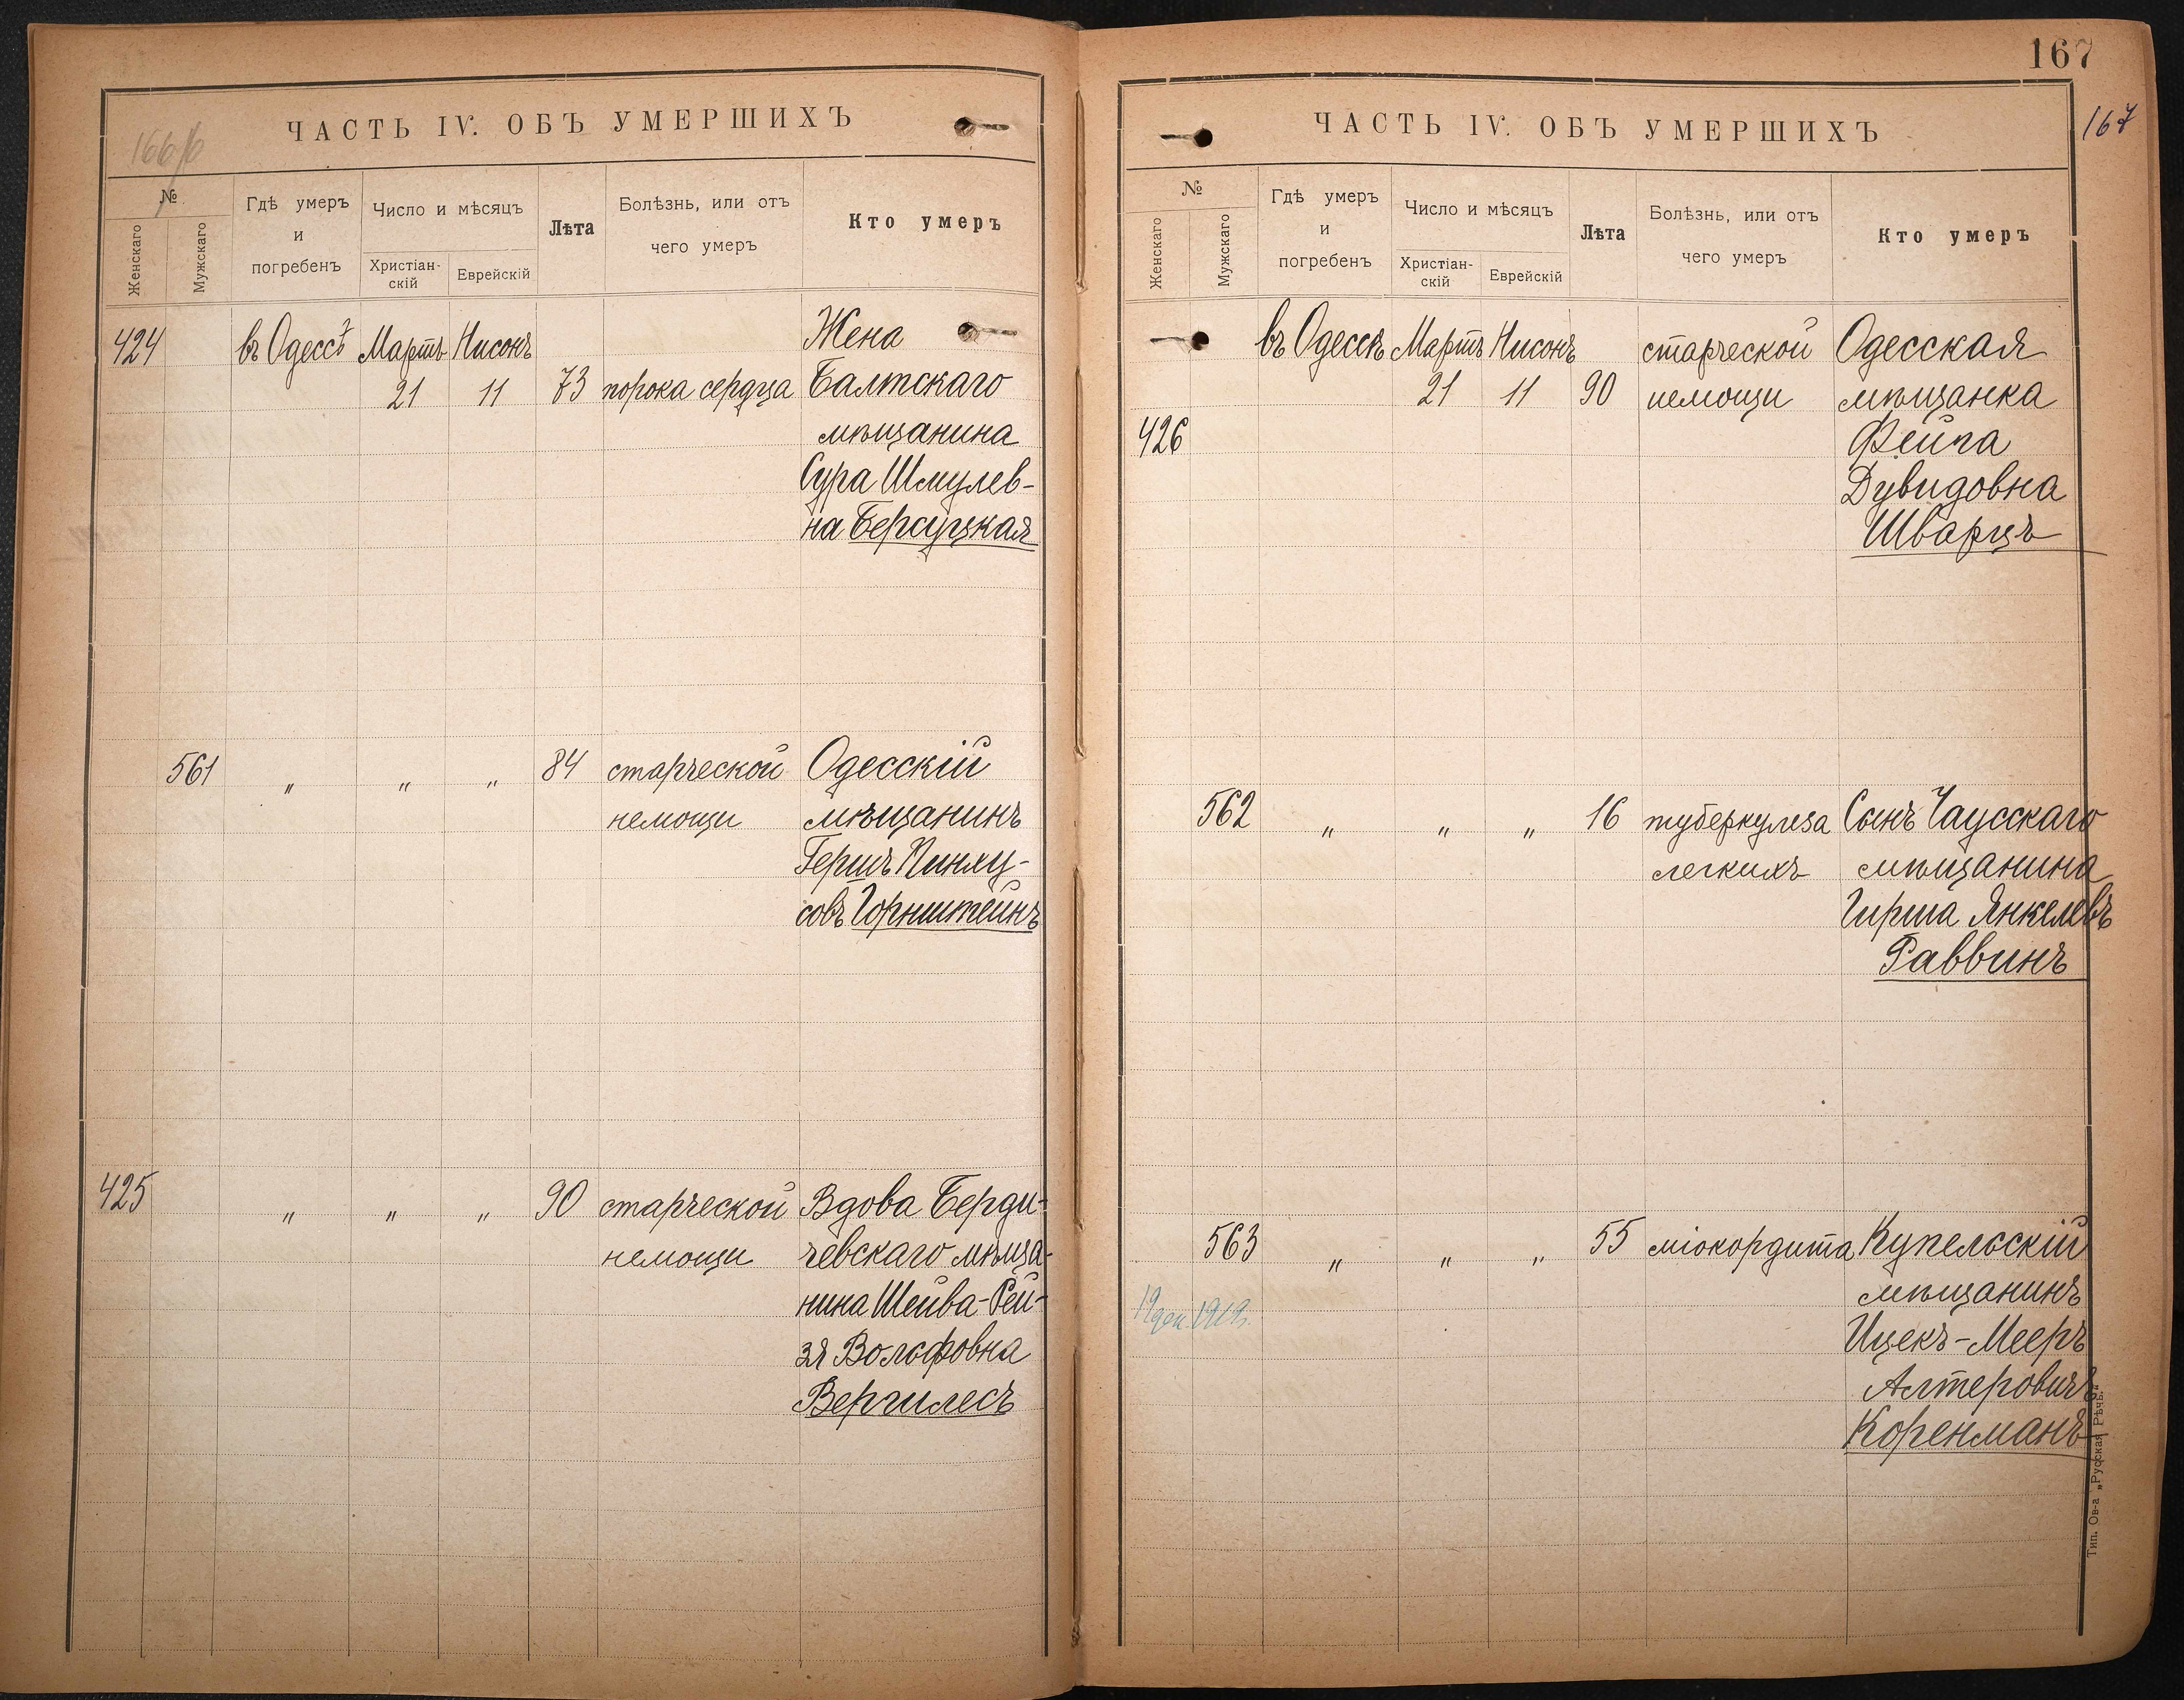 166/б
ЧАСТЬ IV. ОБЪ УМЕРШИХЪ
№
Женскаго
Мужскаго
Гдѣ умеръ
и
погребенъ
Число и мѣсяцъ
Христіан-
скій
Еврейскій
Лѣта
Болѣзнь, или отъ
чего умеръ
Кто умеръ
424 въ Одессѣ Мартъ Нисонъ Жена
21 11 73 порока сердца Балтскаго
мѣщанина
Сура Шмулев-
на Берсуцкая
561 " " " 84 старческой Одесскій
немощи мѣщанинъ
Гершъ Пинху-
совъ Горнштейнъ
425 " " " 90 старческой Вдова Берди-
немощи чевскаго мѣща-
нина Шейва-Рей-
зя Вольфовна
Вергилесъ
167
167
ЧАСТЬ IV. ОБЪ УМЕРШИХЪ
№
Женскаго
Мужскаго
Гдѣ умеръ
и
погребенъ
Число и мѣсяцъ
Христіан-
скій
Еврейскій
Лѣта
Болѣзнь, или отъ
чего умеръ
Кто умеръ
въ Одессѣ Мартъ Нисонъ старческой Одесская
21 11 90 немощи мѣщанка
426 Фейга
Дувидовна
Шварцъ
562 " " " 16 туберкулеза Сынъ Чаусскаго
легкихъ мѣщанина
Гирша Янкелевъ
Раввинъ
563 " " " 55 міокордита Купельскій
19 дек. 1919. мѣщанинъ
Ицекъ-Мееръ
Алтеровичъ
Коренманъ
Тип. Ов-а „Русская Рѣчь."